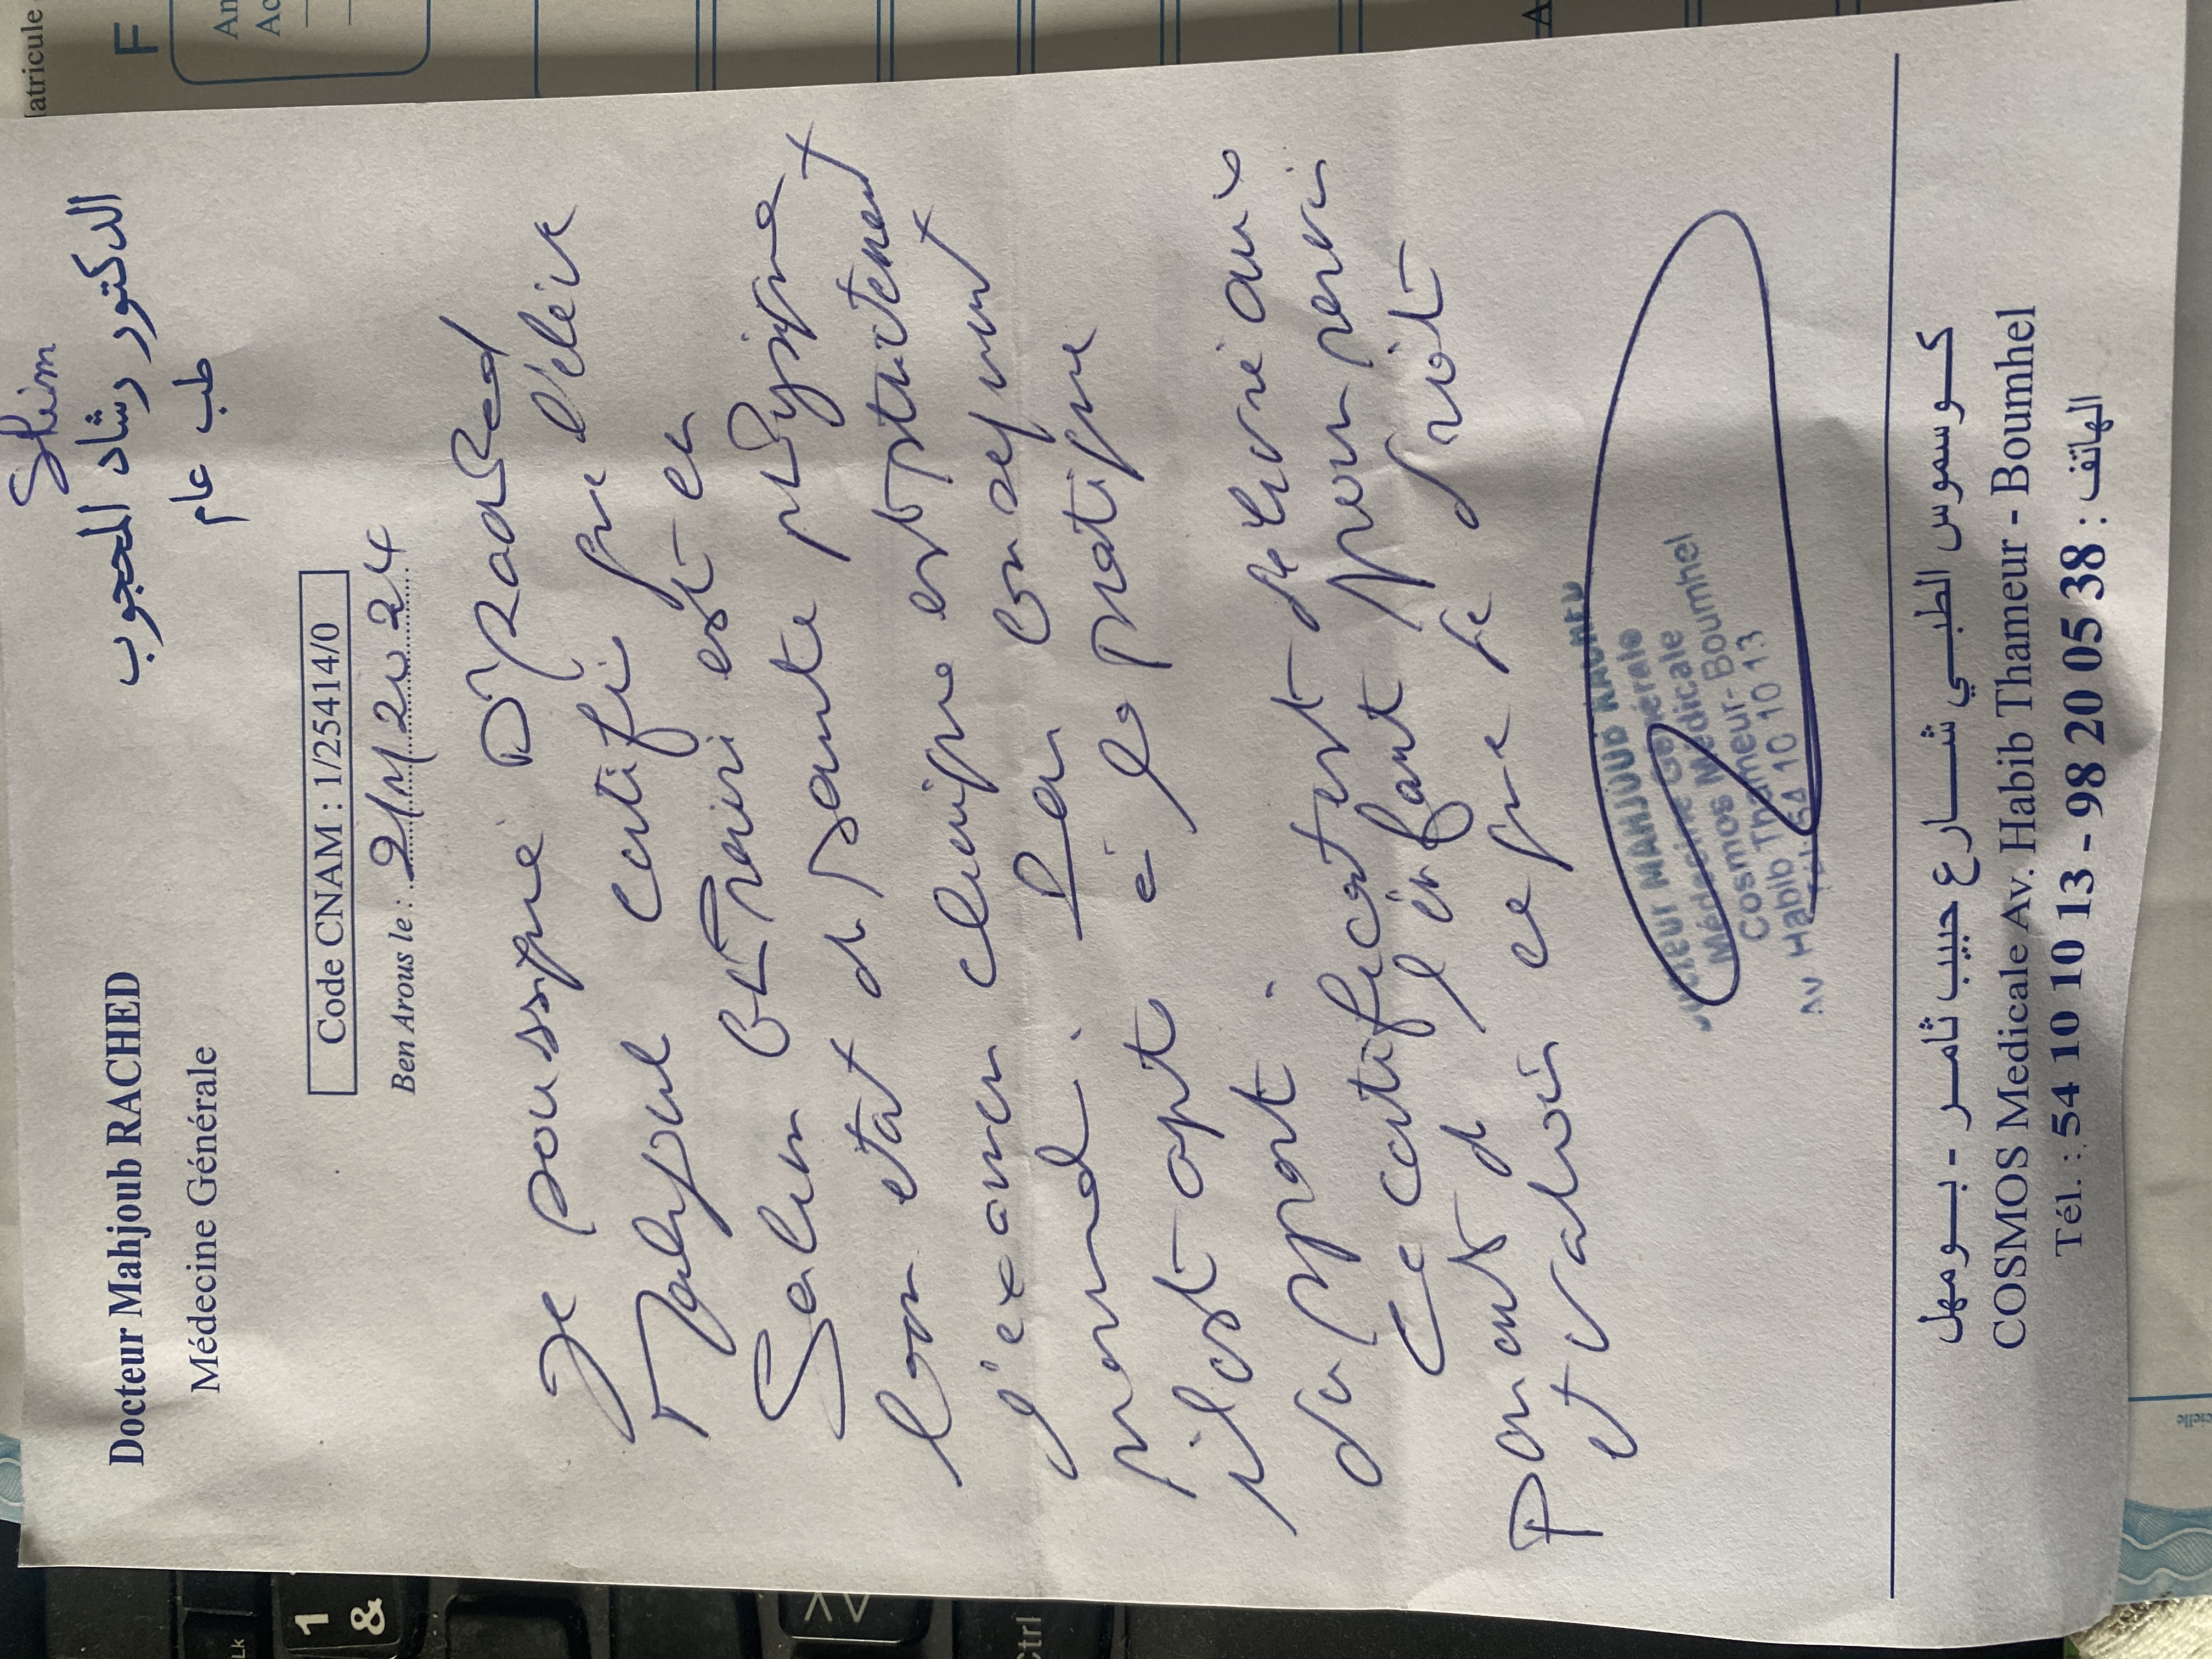 Slim
Docteur Mahjoub RACHED
الدكتور رشاد المحجوب
Médecine Générale
طب عام
Code CNAM : 1/25414/0
Ben Arous le : 2/11/2024
Je soussigné Dr Rached
Mahjoub certifie que l'élève
Selim est en
bon état de santé physique et
l'examen clinique est strictement
normal. Par conséquent
il est apte à la pratique
du sport.
Ce certificat est délivré aux
parents de l'enfant pour servir
et valoir ce que de droit
DOCTEUR MAHJOUB RACHED
Médecine Générale
Cosmos Médicale
Habib Thameur-Boumhel
54 10 10 13
Av Habib
كـوسموس الطبـي شـارع حبيب ثامـر - بـومهل
COSMOS Medicale Av. Habib Thameur - Boumhel
Tél. : 54 10 10 13 - 98 20 05 38 : الهاتف
atricule
F
An
Ac
A
1
&
Ctrl
Lk
cielle